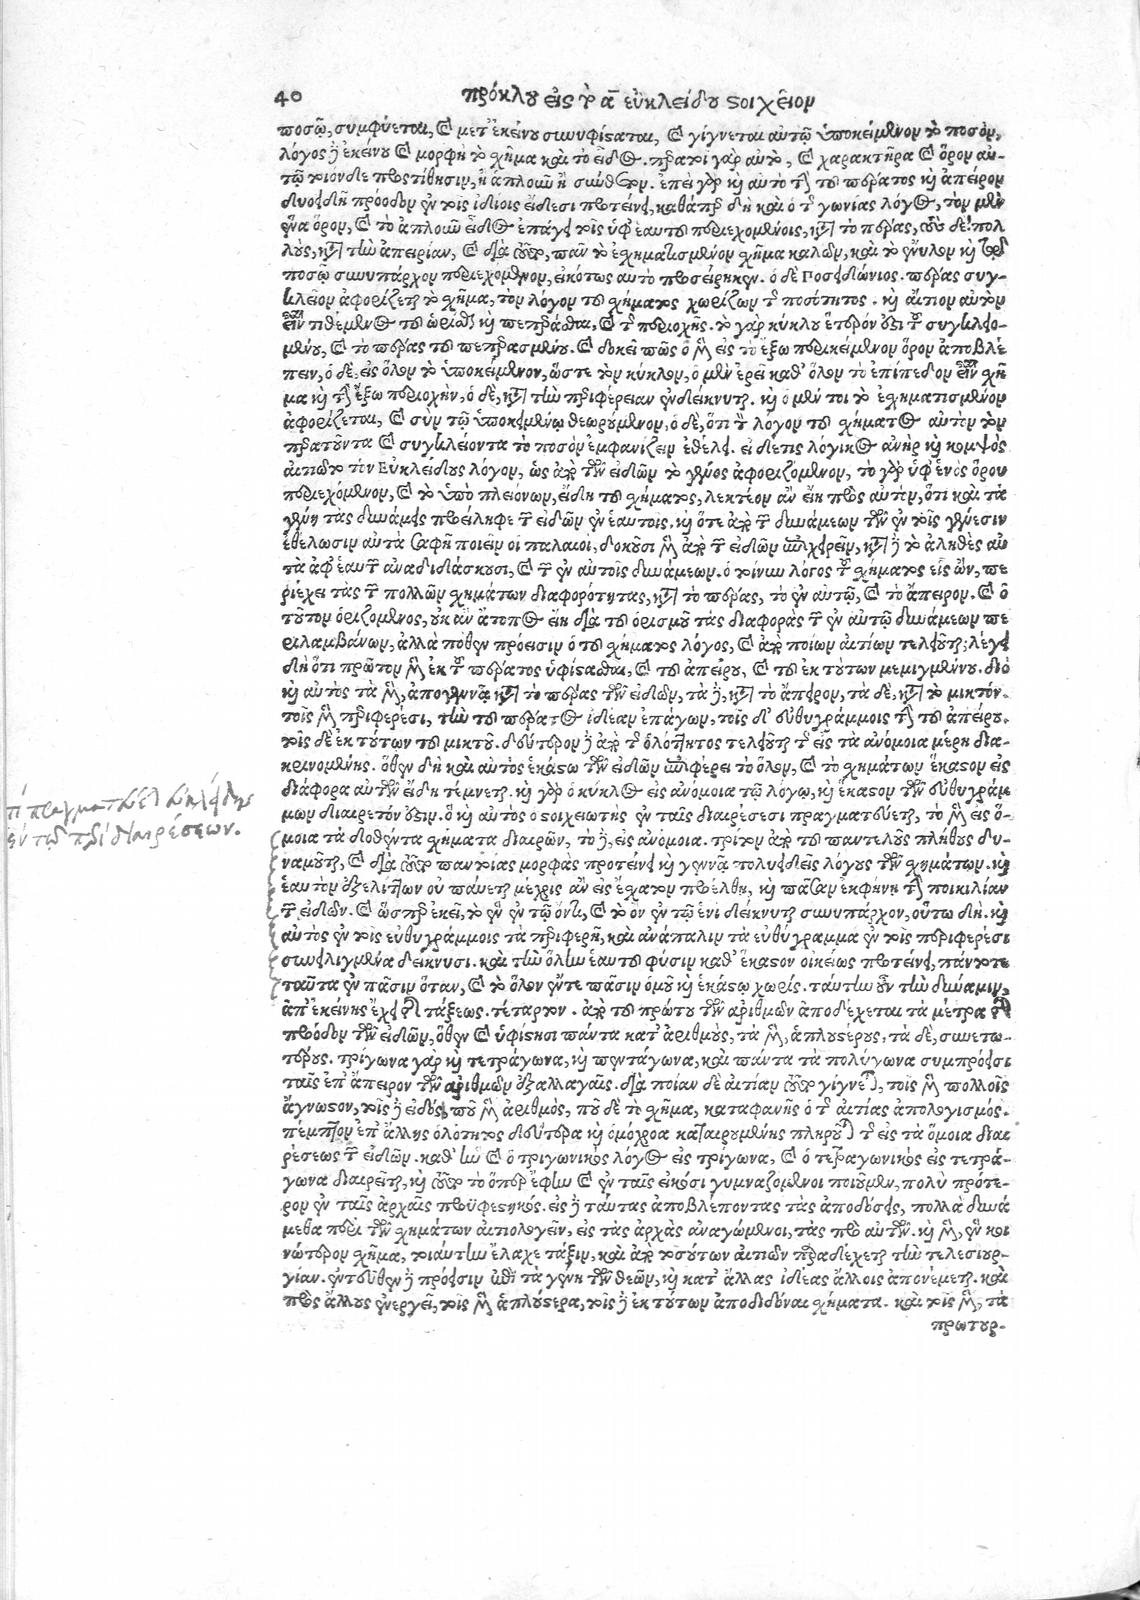 40 πρόκλου εἰς τὸ α̅ εὐκλείδου στοιχεῖον
ποσῷ, συμφύεται, καὶ μετ' ἐκείνου συνυφίσταται, καὶ γίγνεται αὐτῷ ὑποκείμενον τὸ ποσὸν,
λόγος δὲ ἐκείνου καὶ μορφὴ τὸ σχῆμα καὶ τὸ εἶδος. περατοῖ γὰρ αὐτὸ, καὶ χαρακτῆρα καὶ ὅρον αὐ-
τῷ τοιόνδε προστίθησιν, ἢ ἁπλοῦν ἢ σύνθετον. ἐπεὶ γὰρ καὶ αὐτὸ τὴν τοῦ πέρατος καὶ ἀπείρου
δυοειδῆ πρόοδον ἐν τοῖς ἰδίοις εἴδεσι προτείνει, καθάπερ δὴ καὶ ὁ τῆς γωνίας λόγος, τὸν μὲν
ἕνα ὅρον, καὶ τὸ ἁπλοῦν εἶδος ἐπάγει τοῖς ὑφ' ἑαυτοῦ περιεχομένοις, κατὰ τὸ πέρας, τοὺς δὲ πολ
λοὺς, κατὰ τὴν ἀπειρίαν, καὶ διὰ τοῦτο, πᾶν τὸ ἐσχηματισμένον σχῆμα καλῶν, καὶ τὸ ἔνυλον καὶ τῷ
ποσῷ συνυπάρχον περιεχόμενον, εἰκότως αὐτὸ προσείρηκεν. ὁ δὲ Ποσειδώνιος. πέρας συγ-
κλεῖον ἀφορίζεται τὸ σχῆμα, τὸν λόγον τοῦ σχήματος χωρίζων τῆς ποσότητος. καὶ αἴτιον αὐτὸν
εἶναι τιθέμενος τοῦ ὡρίσθαι καὶ πεπεράσθαι, καὶ τῆς περιοχῆς. τὸ γὰρ κύκλου ἕτερόν ἐστι τοῦ συγκλειο-
μένου, καὶ τὸ πέρας τοῦ πεπερασμένου. καὶ δοκεῖ πῶς ὁ μὲν εἰς τὸ ἔξω περικείμενον ὅρον ἀποβλέ
πειν, ὁ δὲ, εἰς ὅλον τὸ ὑποκείμενον, ὥστε τὸν κύκλον, ὁ μὲν ἐρεῖ καθ' ὅλον τὸ ἐπίπεδον εἶναι σχῆ
μα καὶ τὴν ἔξω περιοχὴν, ὁ δὲ, κατὰ τὴν περιφέρειαν ἐνδείκνυται. καὶ ὁ μέν τοι τὸ ἐσχηματισμένον
ἀφορίζεται, καὶ σὺν τῷ ὑποκειμένῳ θεωρούμενον, ὁ δὲ, ὅτι τὸν λόγον τοῦ σχήματος αὐτὸν τὸν
περατοῦντα καὶ συγκλείοντα τὸ ποσὸν ἐμφανίζειν ἐθέλει. εἰ δέ τις λογικὸς ἀνὴρ καὶ κομψὸς
αἰτιῷτο τὸν Εὐκλείδους λόγον, ὡς ἀπὸ τῶν εἰδῶν τὸ γένος ἀφοριζόμενον, τὸ γὰρ ὑφ' ἑνὸς ὅρου
περιεχόμενον, καὶ τὸ ὑπὸ πλειόνων, εἴδη τοῦ σχήματος, λεκτέον ἂν εἴη πρὸς αὐτὸν, ὅτι καὶ τὰ
γένη τὰς δυνάμεις προείληφε τῶν εἰδῶν ἐν ἑαυτοῖς. καὶ ὅτε ἀπὸ τῶν δυνάμεων τῶν ἐν τοῖς γένεσιν
ἐθέλωσιν αὐτὰ σαφῆ ποιεῖν οἱ παλαιοὶ, δοκοῦσι μὲν ἀπὸ τῶν εἰδῶν ἐπιχειρεῖν, κατὰ δὲ τὸ ἀληθὲς αὐ
τὰ ἀφ' ἑαυτῶν ἀναδιδάσκουσι, καὶ τῶν ἐν αὐτοῖς δυνάμεων. ὁ τοίνυν λόγος τοῦ σχήματος εἷς ὢν, πε
ριέχει τὰς τῶν πολλῶν σχημάτων διαφορότητας, κατὰ τὸ πέρας, τὸ ἐν αὐτῷ, καὶ τὸ ἄπειρον. καὶ ὁ
τοῦτον ὁριζόμενος, οὐκ ἂν ἄτοπος εἴη διὰ τοῦ ὁρισμοῦ τὰς διαφορὰς τῶν ἐν αὐτῷ δυνάμεων πε
ριλαμβάνων, ἀλλὰ πόθεν πρόεισιν ὁ τοῦ σχήματος λόγος, καὶ ἀπὸ ποίων αἰτίων τελειοῦται; λέγω
δὴ ὅτι πρῶτον μὲν ἐκ τοῦ πέρατος ὑφίσταται, καὶ τοῦ ἀπείρου, καὶ τοῦ ἐκ τούτων μεμιγμένου. διὸ
καὶ αὐτὸς τὰ μὲν, ἀπογεννᾷ κατὰ τὸ πέρας τῶν εἰδῶν, τὰ δὲ, κατὰ τὸ ἄπειρον, τὰ δὲ, κατὰ τὸ μικτόν.
τοῖς μὲν περιφερέσι, τὴν τοῦ πέρατος ἰδέαν ἐπάγων, τοῖς δ' εὐθυγράμμοις τὴν τοῦ ἀπείρου.
τοῖς δὲ ἐκ τούτων τοῦ μικτοῦ. δεύτερον δὲ ἀπὸ τῆς ὁλότητος τελειοῦται τῆς εἰς τὰ ἀνόμοια μέρη δια-
κρινομένης. ὅθεν δὴ καὶ αὐτὸς ἑκάστῳ τῶν εἰδῶν ἐπιφέρει τὸ ὅλον, καὶ τὸ σχημάτων ἕκαστον εἰς
διάφορα αὐτῶν εἴδη τέμνεται. καὶ γὰρ ὁ κύκλος εἰς ἀνόμοια τῷ λόγῳ, καὶ ἕκαστον τῶν εὐθυγράμ
μων διαιρετόν ἐστιν. ὃ καὶ αὐτὸς ὁ στοιχειωτὴς ἐν ταῖς διαιρέσεσι πραγματεύεται, τὸ μὲν εἰς ὅ-
μοια τὰ δοθέντα σχήματα διαιρῶν, τὸ δὲ, εἰς ἀνόμοια. τρίτον ἀπὸ τοῦ παντελοῦς πλήθους δυ-
ναμοῦται, καὶ διὰ τοῦτο παντοίας μορφὰς προτείνει καὶ γεννᾷ πολυειδεῖς λόγους τῶν σχημάτων. καὶ
ἑαυτὸν ἐξελίττων οὐ παύεται μέχρις ἂν εἰς ἔσχατον προέλθῃ, καὶ πᾶσαν ἐκφήνῃ τὴν ποικιλίαν
τῶν εἰδῶν. καὶ ὥσπερ ἐκεῖ, τὸ ἓν ἐν τῷ ὄντι, καὶ τὸ ὂν ἐν τῷ ἑνὶ δείκνυται συνυπάρχον, οὕτω δὴ καὶ
αὐτὸς ἐν τοῖς εὐθυγράμμοις τὰ περιφερῆ, καὶ ἀνάπαλιν τὰ εὐθύγραμμα ἐν τοῖς περιφερέσι
συνειλιγμένα δείκνυσι. καὶ τὴν ὅλην ἑαυτοῦ φύσιν καθ' ἕκαστον οἰκείως προτείνει, πάντοτε
ταῦτα ἐν πᾶσιν ὅταν, καὶ τὸ ὅλον ἔν τε πᾶσιν ὁμοῦ καὶ ἑκάστῳ χωρίς. ταύτην οὖν τὴν δύναμιν,
ἀπ' ἐκείνης ἔχει τῆς τάξεως. τέταρτον. ἀπὸ τοῦ πρώτου τῶν ἀριθμῶν ἀποδέχεται τὰ μέτρα τῆς
προόδου τῶν εἰδῶν, ὅθεν καὶ ὑφίστησι πάντα κατ' ἀριθμοὺς, τὰ μὲν, ἁπλουστέρους, τὰ δὲ, συνετω-
τέρους. τρίγωνα γὰρ καὶ τετράγωνα, καὶ πεντάγωνα, καὶ πάντα τὰ πολύγωνα συμπρόεισι
ταῖς ἐπ' ἄπειρον τῶν ἀριθμῶν ἐξαλλαγαῖς. διὰ ποίαν δὲ αἰτίαν τοῦτο γίγνεται, τοῖς μὲν πολλοῖς
ἄγνωστον, τοῖς δὲ εἰδόσι, ποῦ μὲν ἀριθμὸς, ποῦ δὲ τὸ σχῆμα, καταφανὴς ὁ τῆς αἰτίας ἀπολογισμός.
πέμπτον ἐπ' ἄλλης ὁλότητος δεύτερα καὶ ὁμόχροα καταιρουμένης πληροῦται τῆς εἰς τὰ ὅμοια διαι
ρέσεως τῶν εἰδῶν. καθ' ἣν καὶ ὁ τριγωνικὸς λόγος εἰς τρίγωνα, καὶ ὁ τετραγωνικὸς εἰς τετρά-
γωνα διαιρεῖται, καὶ τοῦτο τὸ ὅπερ ἔφην καὶ ἐν ταῖς εἰκόσι γυμναζόμενοι ποιοῦμεν, πολὺ πρότε-
ρον ἐν ταῖς ἀρχαῖς προϋφεστηκός. εἰς δὲ ταύτας ἀποβλέποντας τὰς ἀποδόσεις, πολλὰ δυνά
μεθα περὶ τῶν σχημάτων αἰτιολογεῖν, εἰς τὰς ἀρχὰς ἀναγόμενοι, τὰς πρὸ αὐτῶν. καὶ μὲν, ἓν κοι
νότερον σχῆμα, τοιαύτην ἔλαχε τάξιν, καὶ ἀπὸ τοσούτων αἰτιῶν παραδέχεται τὴν τελεσιουρ-
γίαν. ἐντεῦθεν δὲ πρόεισιν ἐπὶ τὰ γένη τῶν θεῶν, καὶ κατ' ἄλλας ἰδέας ἄλλοις ἀπονέμεται. καὶ
πρὸς ἄλλους ἐνεργεῖ, τοῖς μὲν ἁπλούστερα, τοῖς δὲ ἐκ τούτων ἀποδιδόναι σχήματα. καὶ τοῖς μὲν, τὰ
πρωτουρ-
ἐν τῷ περὶ διαιρέσεων.